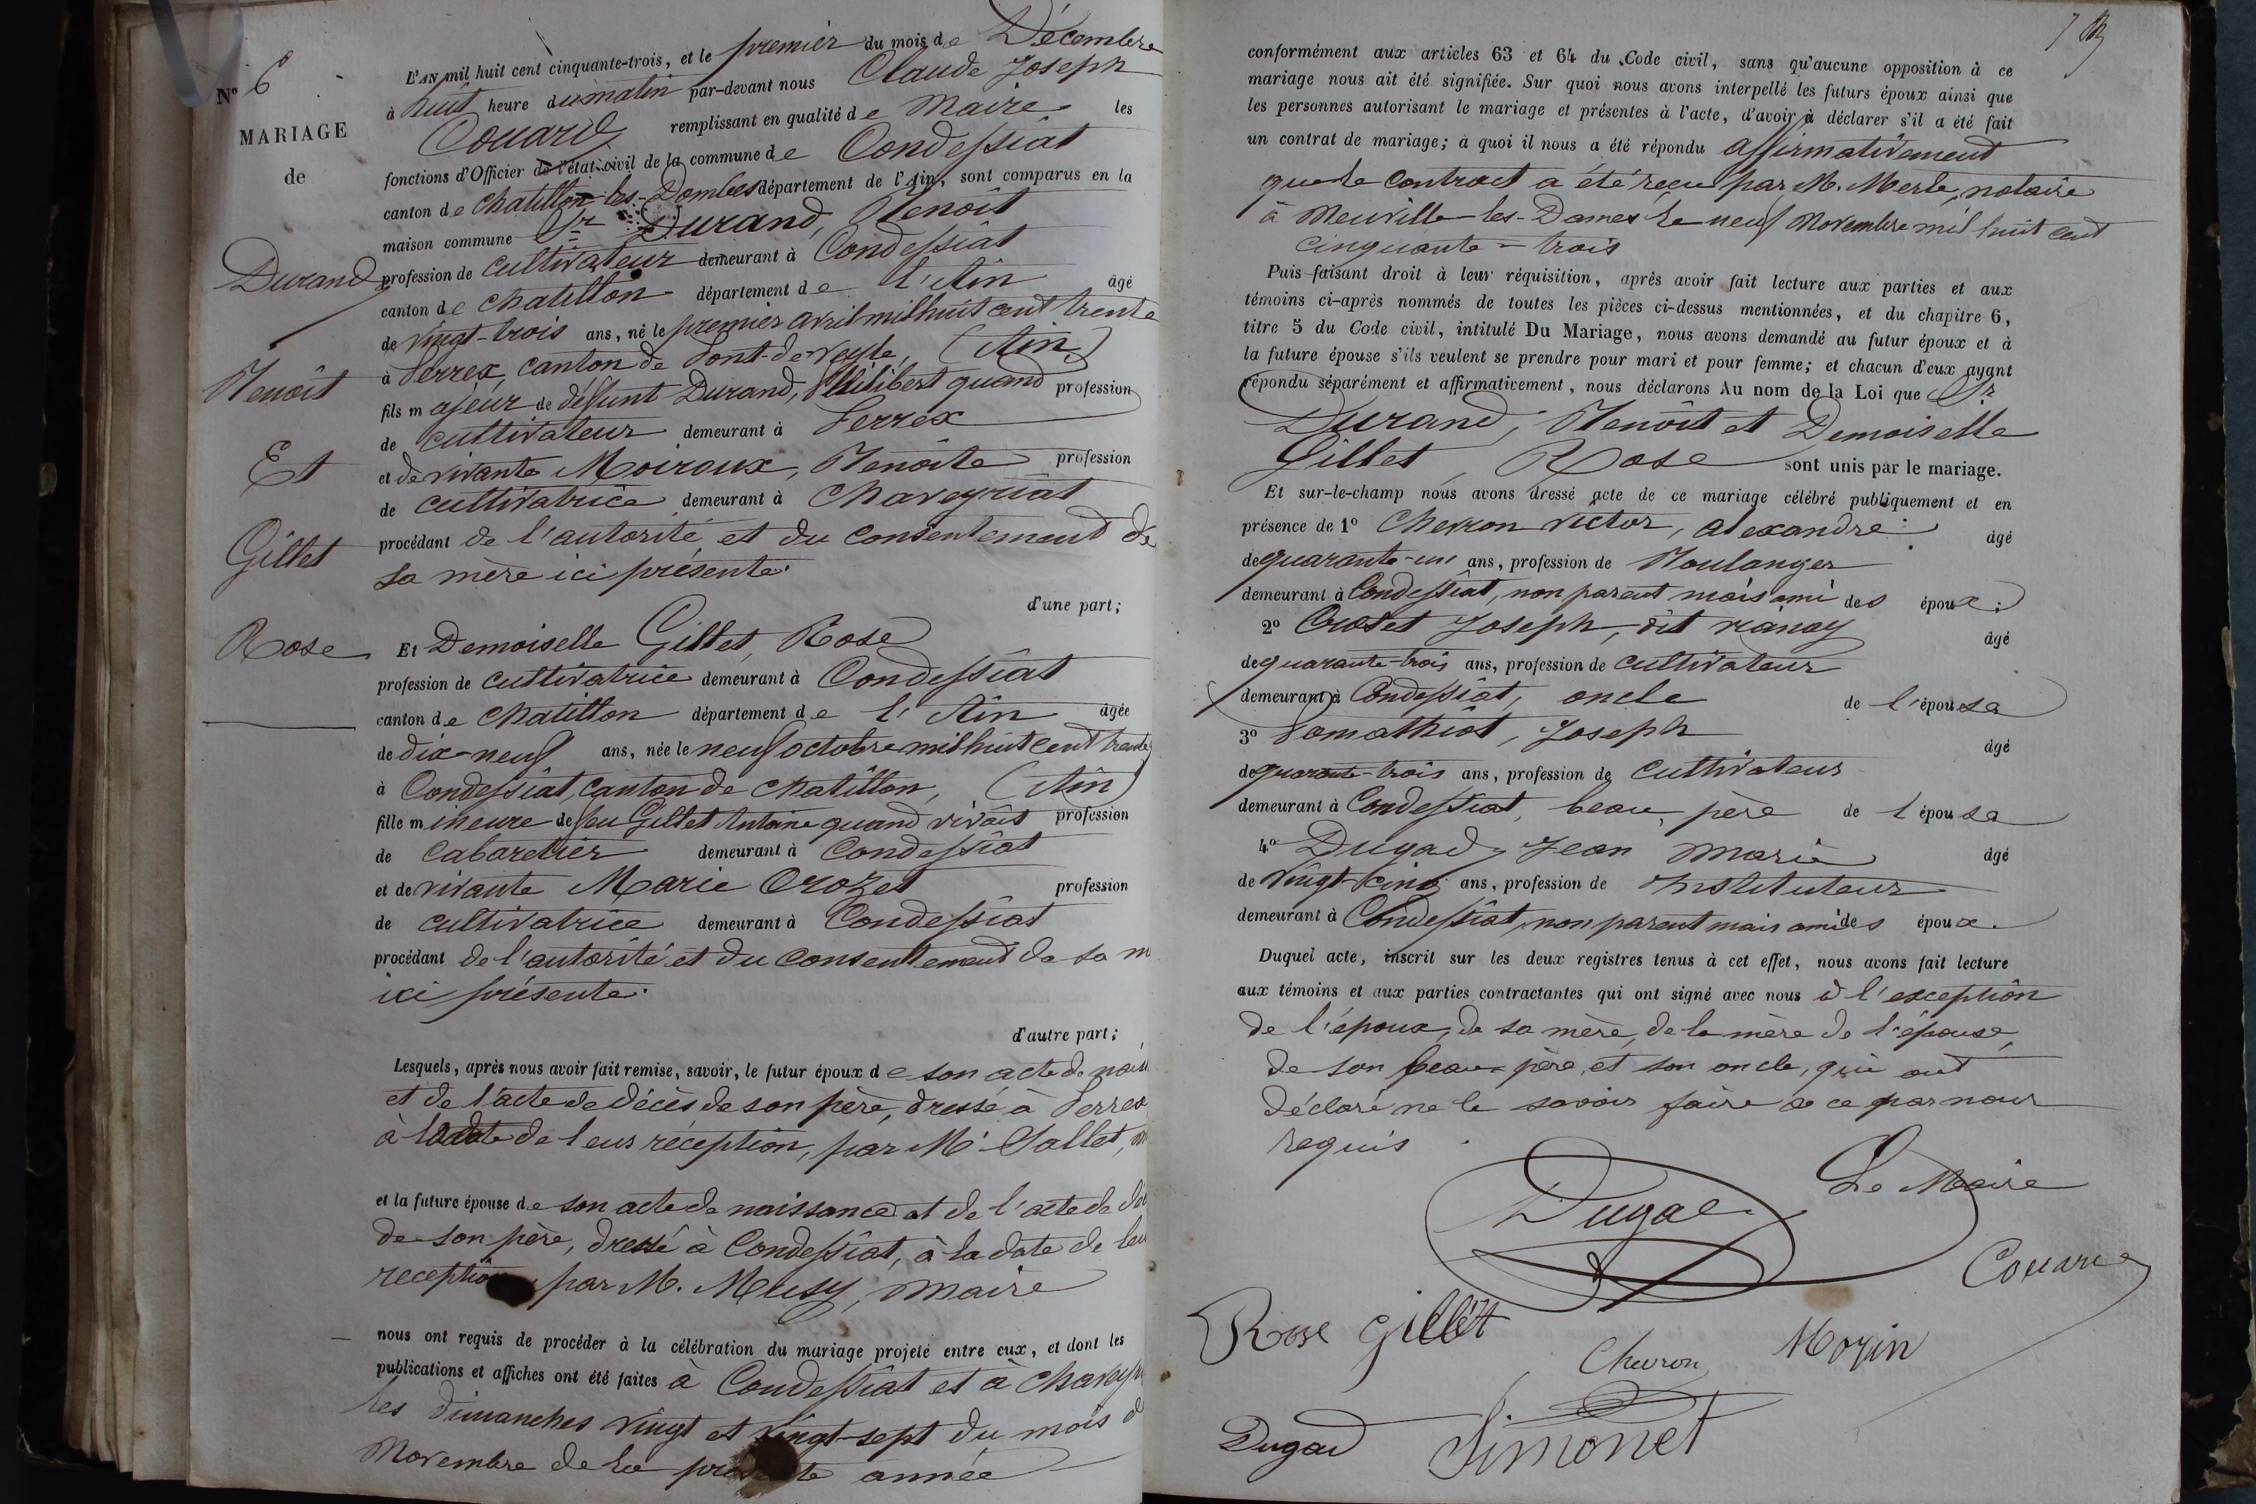 N° 6
MARIAGE
de
Durand
Benoît
Et
Gillet
Rose
L'AN mil huit cent cinquante-trois, et le premier du mois de Décembre
à huit heure du matin par-devant nous Claude Joseph
Couard remplissant en qualité de Maire les
fonctions d'Officier de l'état-civil de la commune de Condessiat
canton de Chatillon-les-Dombes département de l'Ain, sont comparus en la
maison commune Sr Durand, Benoît
profession de cultivateur demeurant à Condessiat
canton de Chatillon département de l'Ain âgé
de vingt-trois ans, né le premier avril mil huit cent trente
à Perrex, canton de Pont-de-Veyle, (Ain)
fils majeur de défunt Durand, Philibert quand profession
de cultivateur demeurant à Perrex
et de vivante Moiroux, Benoîte profession
de cultivatrice demeurant à Chaveyriat
procédant de l'autorité et du consentement de
sa mère ici présente.
d'une part;
Et Demoiselle Gillet, Rose
profession de cultivatrice demeurant à Condessiat
canton de Chatillon département de l'Ain âgée
de dix-neuf ans, née le neuf octobre mil huit cent trente
à Condessiat, canton de Chatillon, (Ain)
fille mineure de feu Gillet Antoine quand vivait profession
de cabaretier demeurant à Condessiat
et de vivante Marie Crozet profession
de cultivatrice demeurant à Condessiat
procédant de l'autorité et du consentement de sa m
ici présente.
d'autre part;
Lesquels, après nous avoir fait remise, savoir, le futur époux de son acte de naiss
et de l'acte de décès de son père, dressé à Perrex
à la date de leur réception, par M. Sallet, m
et la future épouse de son acte de naissance et de l'acte de déc
de son père, dressé à Condessiat, à la date de leu
reception par M. Musy, maire
nous ont requis de procéder à la célébration du mariage projeté entre eux, et dont les
publications et affiches ont été faites à Condessiat et à Chavey
les dimanches vingt et vingt-sept du mois d
Novembre de la présente année
conformément aux articles 63 et 64 du Code civil, sans qu'aucune opposition à ce
mariage nous ait été signifiée. Sur quoi nous avons interpellé les futurs époux ainsi que
les personnes autorisant le mariage et présentes à l'acte, d'avoir à déclarer s'il a été fait
un contrat de mariage; à quoi il nous a été répondu affirmativement
que le contract a été reçu par M. Merle, notaire
à Neuville-les-Dames le neuf Novembre mil huit cent
cinquante-trois
Puis faisant droit à leur réquisition, après avoir fait lecture aux parties et aux
témoins ci-après nommés de toutes les pièces ci-dessus mentionnées, et du chapitre 6,
titre 5 du Code civil, intitulé Du Mariage, nous avons demandé au futur époux et à
la future épouse s'ils veulent se prendre pour mari et pour femme; et chacun d'eux ayant
répondu séparément et affirmativement, nous déclarons Au nom de la Loi que Sr
Durand, Benoît et Demoiselle
Gillet, Rose sont unis par le mariage.
Et sur-le-champ nous avons dressé acte de ce mariage célébré publiquement et en
présence de 1° Chevron Victor, Alexandre âgé
de quarante-un ans, profession de Boulanger
demeurant à Condessiat, non parent mais ami des époux;
2° Crozet Joseph, dit âgé
de quarante-trois ans, profession de cultivateur
demeurant à Condessiat, oncle de l'épouse
3° Pomathiot, Joseph âgé
de quarante-trois ans, profession de cultivateur
demeurant à Condessiat, beau-père de l'épouse
4° Dugad, Jean Marie âgé
de vingt-cinq ans, profession de Instituteur
demeurant à Condessiat, non parent mais ami des époux.
Duquel acte, inscrit sur les deux registres tenus à cet effet, nous avons fait lecture
aux témoins et aux parties contractantes qui ont signé avec nous à l'exception
de l'époux, de sa mère, de la mère de l'épouse,
de son beau-père, et son oncle, qui ont
déclaré ne le savoir faire de ce par nous
requis.
Dugad
Le Maire
Couard
Rose Gillet
Chevron
Morin
Dugad
Simonet